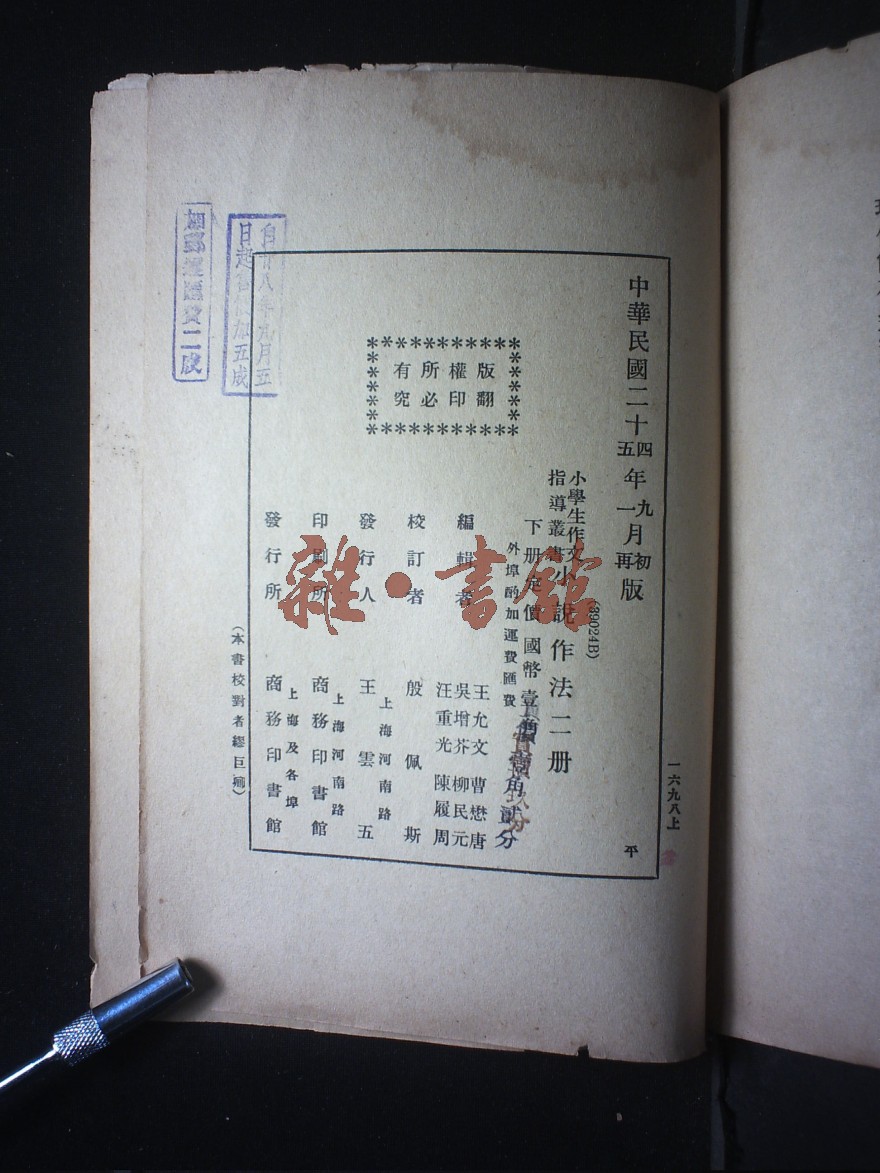 中華民國二十四年九月初版
五一再
(39024B)
小學生作文
指導叢書
小說作法二册
下册定價國幣壹角貳分
外埠酌加運費匯費
版權所有
翻印必究
編輯者
王允文 曹懋唐
吳增芥 柳民元
汪重光 陳履周
校訂者 殷佩斯
發行人 王雲五
上海河南路
印刷所 商務印書館
上海河南路
發行所 商務印書館
上海及各埠
(本書校對者繆巨
一六九八上
平
自廿八年九月五
日起 加五成
加郵運匯費二成
雜·書館